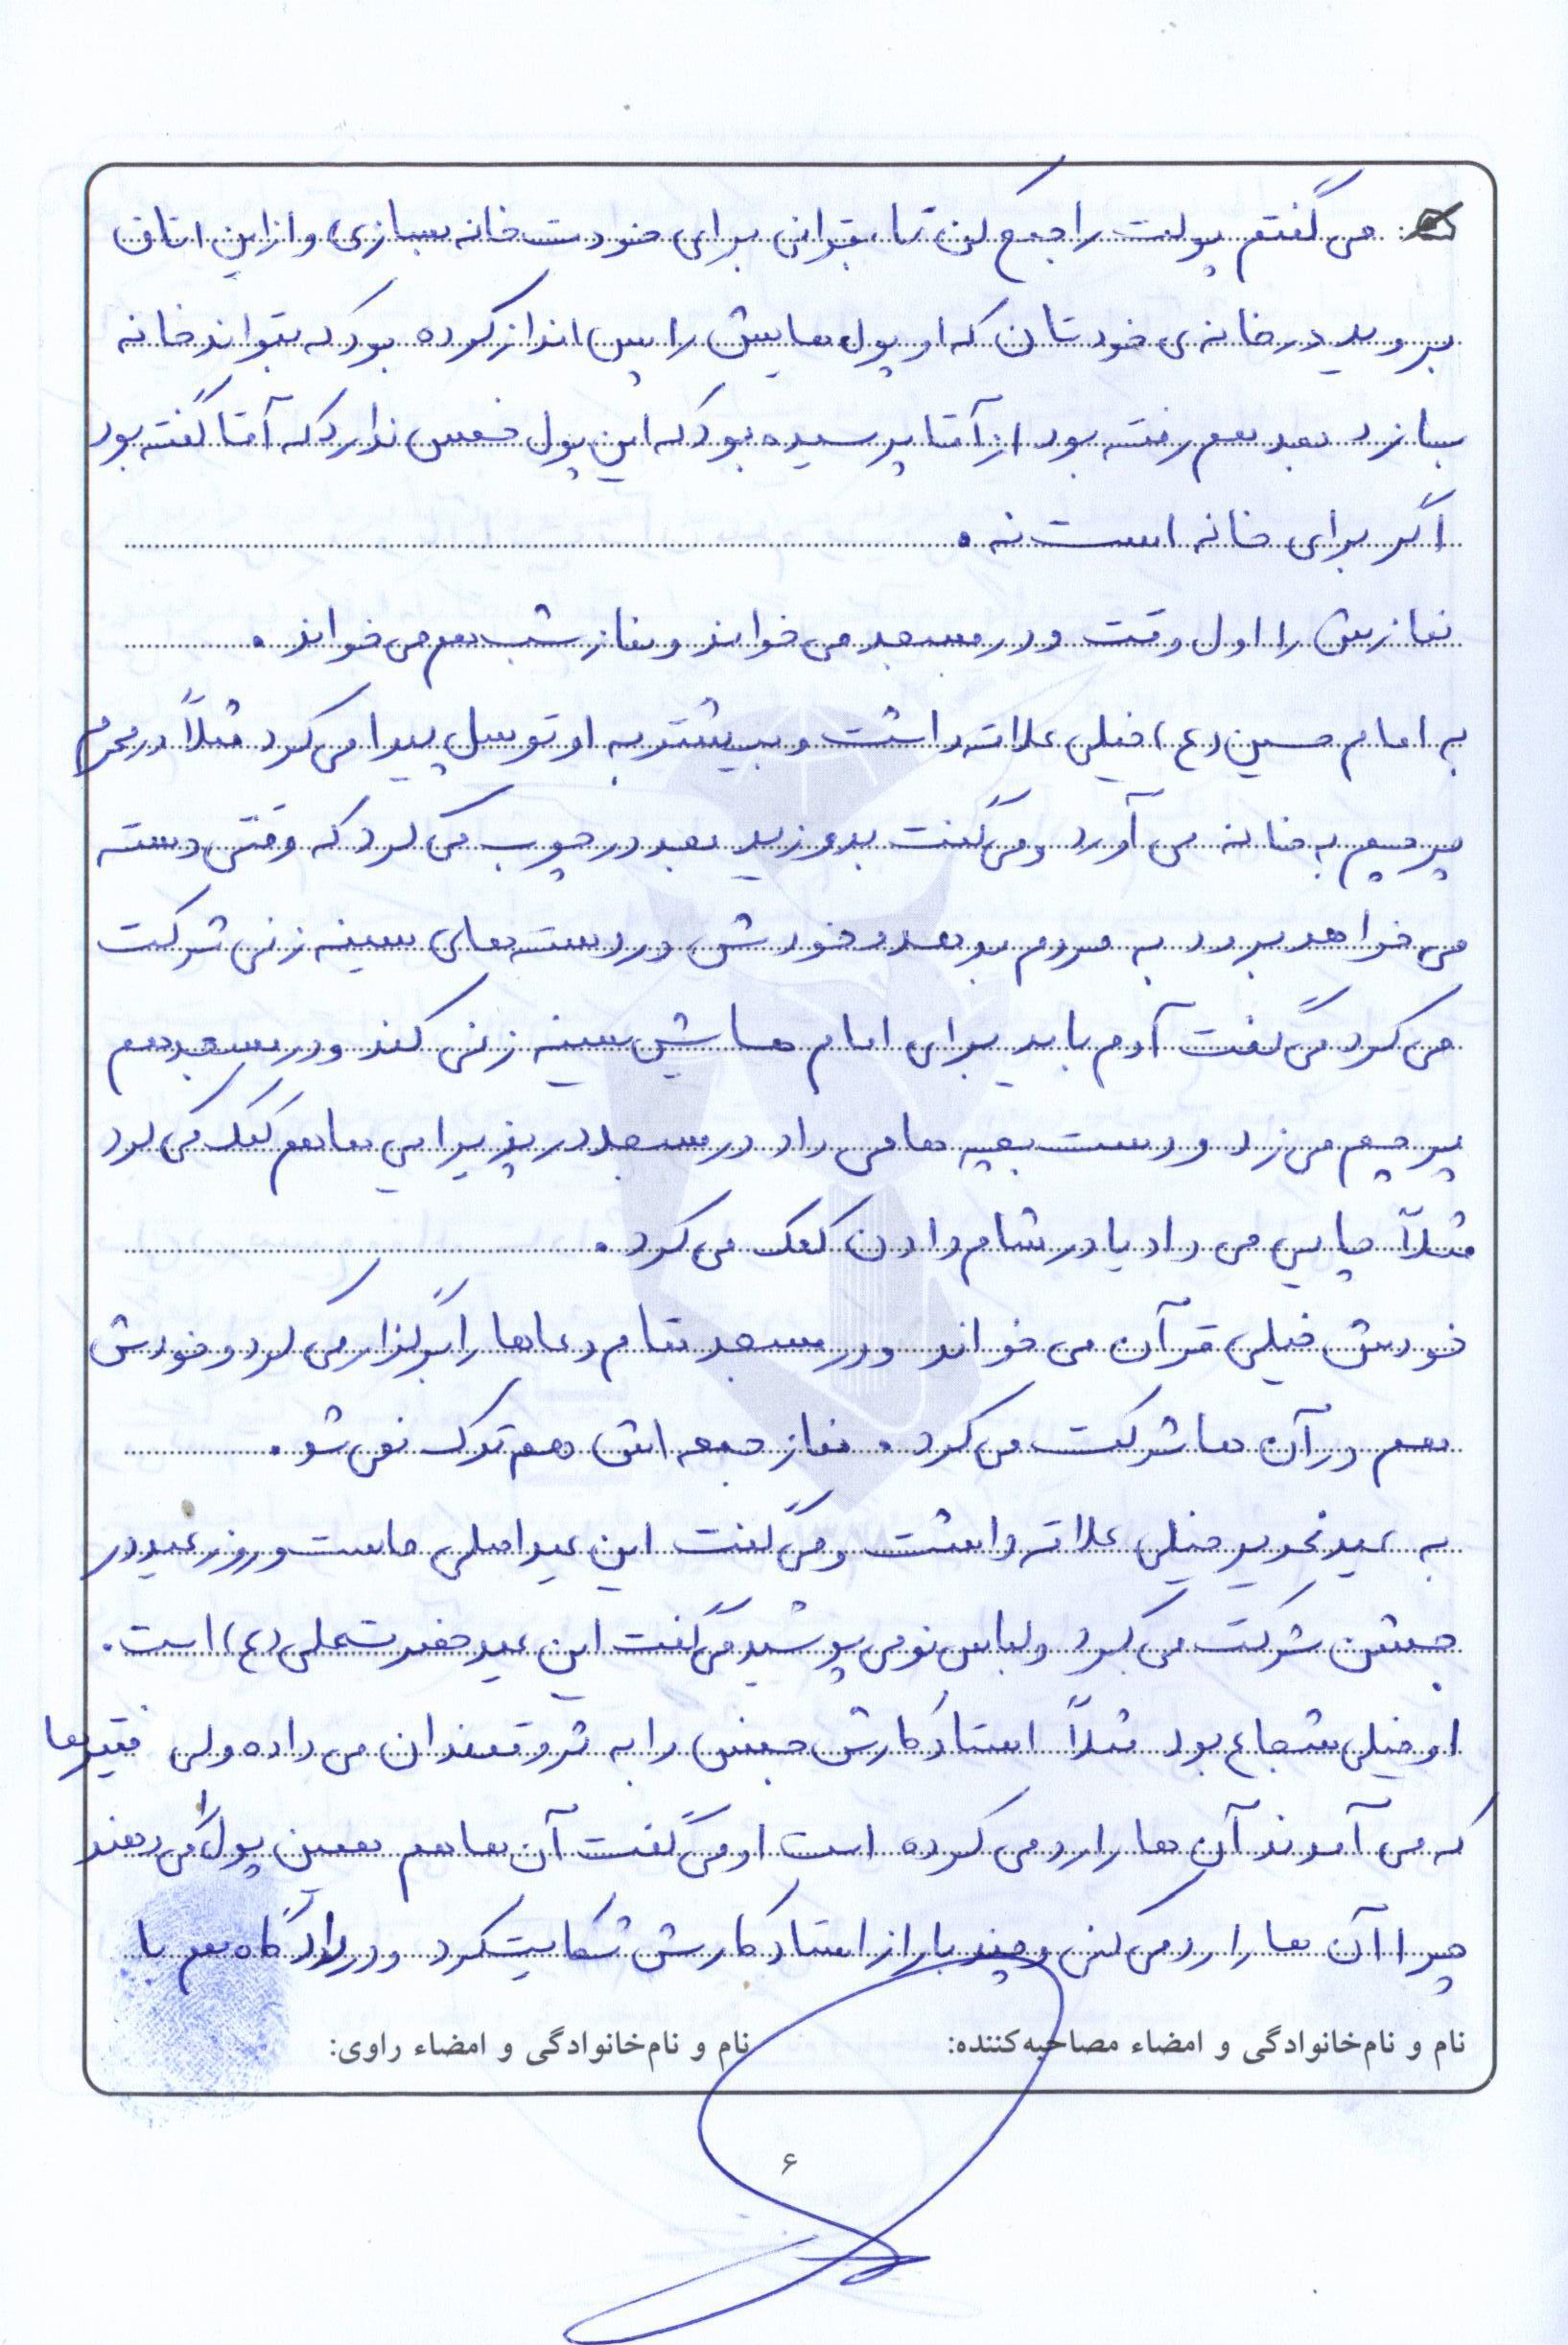 می گفتم پولت را جمع کن تا بتوانی برای خودت خانه بسازی و از این اتاق
بروید در خانه ی خودتان که او پول هایش را پس انداز کرده بود که بتواند خانه
بسازد بعد هم رفته بود از آقا پرسیده بود که این پول خمس ندارد که آقا گفته بود
اگر برای خانه است نه .
نمازش را اول وقت و در مسجد می خواند و نماز شب هم می خواند .
به امام حسین (ع) خیلی علاقه داشت و بیشتر به او توسل پیدا می کرد مثلاً در محرم
پرچم به خانه می آورد و می گفت بدوزید بعد در چوب می کرد که وقتی دسته
می خواهد برود به مردم بدهد و خودش در دسته های سینه زنی شرکت
می کرد می گفت آدم باید برای امام هایش سینه زنی کند و در مسجد هم
پرچم می زد و دست بچه ها می داد در مسجد در پذیرایی ها هم کمک می کرد
مثلاً چایی می داد یا در شام دادن کمک می کرد .
خودش خیلی قرآن می خواند و در مسجد تمام دعاها را برگزار می کرد و خودش
هم در آن ها شرکت می کرد . نماز جمعه اش هم ترک نمی شو .
به عید غدیر خیلی علاقه داشت و می گفت این عید اصلی ماست و روز عید در
جشن شرکت می کرد و لباس نو می پوشید می گفت این عید حضرت علی (ع) است .
او خیلی شجاع بود مثلاً استاد کارش جنس را به ثروتمندان می داده ولی فقیرها
که می آمدند آن ها را رد می کرده است او می گفت آن ها هم همین پول را می دهند
چرا آن ها را رد می کنی و چند بار از استاد کارش شکایت کرد و در دادگاه هم با
نام و نام‌خانوادگی و امضاء مصاحبه‌کننده: نام و نام‌خانوادگی و امضاء راوی:
۶